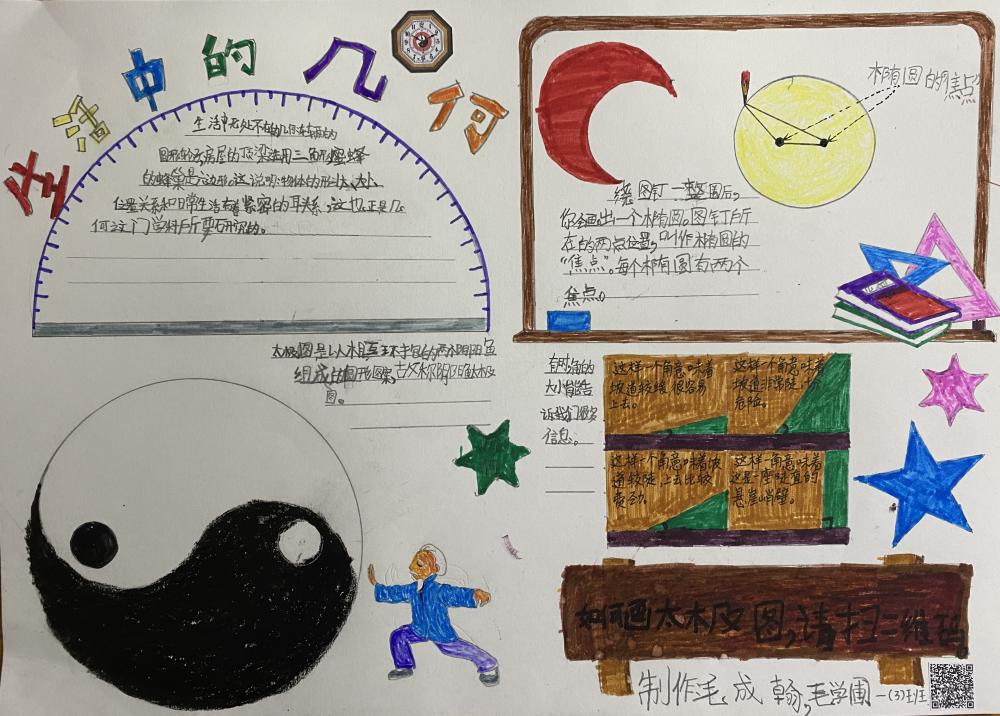 生活中的几何
生活中无处不在的几何车辆的
圆形轮子房屋的顶梁选用三角形蜜蜂
的蜂巢是六边形。这说明:物体的形状、大小、
位置关系和日常生活有着紧密的联系,这也正是几
何这门学科所要研究的。
椭圆的焦点
绕图钉一整圈后,
你会画出一个椭圆。图钉所
在的两点位置,叫作椭圆的
“焦点”。每个椭圆有两个
焦点。
太极图是以
组成的圆形图案,古又称阴阳鱼太极
图。
有时角的
大小能告
诉我们很多
信息。
这样一个角意味着
坡道较缓,很容易
上去。
这样一个角意味着
坡道非常陡,十分
危险。
这样一个角意味着坡
道较陡,上去比较
费劲。
这样一角意味着
这是一座陡直的
悬崖峭壁。
如何画太极图,请扫二维码
制作毛成翰,毛学圃一(3)班